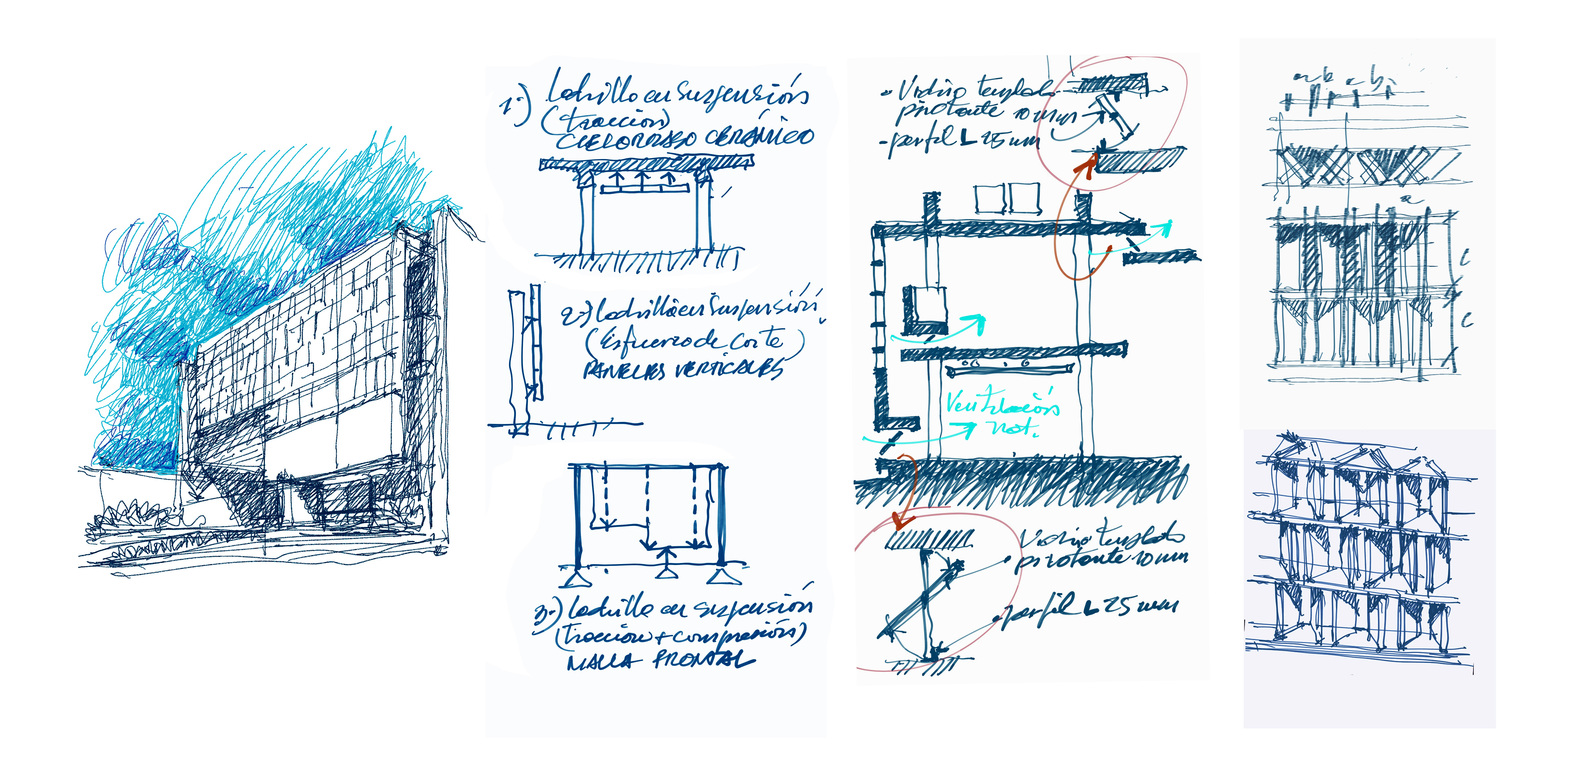 1-) Ladrillo en Suspensión
(tracción)
CIELORRASO CERÁMICO
2-) Ladrillo en Suspensión
(Esfuerzo de Corte)
PANELES VERTICALES
3-) Ladrillo en suspensión
(tracción + compresión)
MALLA FRONTAL
- Vidrio templado
pivotante 10 mm
- perfil L 25 mm
Ventilación
nat.
Vidrio templado
pivotante 10 mm
perfil L 25 mm
a b a b